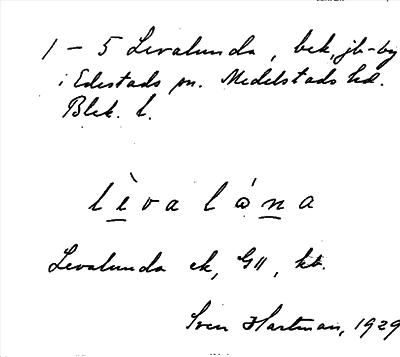 1 - 5 Levalunda, bek, jb-by
i Edestads sn. Medelstads hd.
Blek. l.
lèva lána
Levalunda ek, GII, kb.
Sven Hartman, 1929